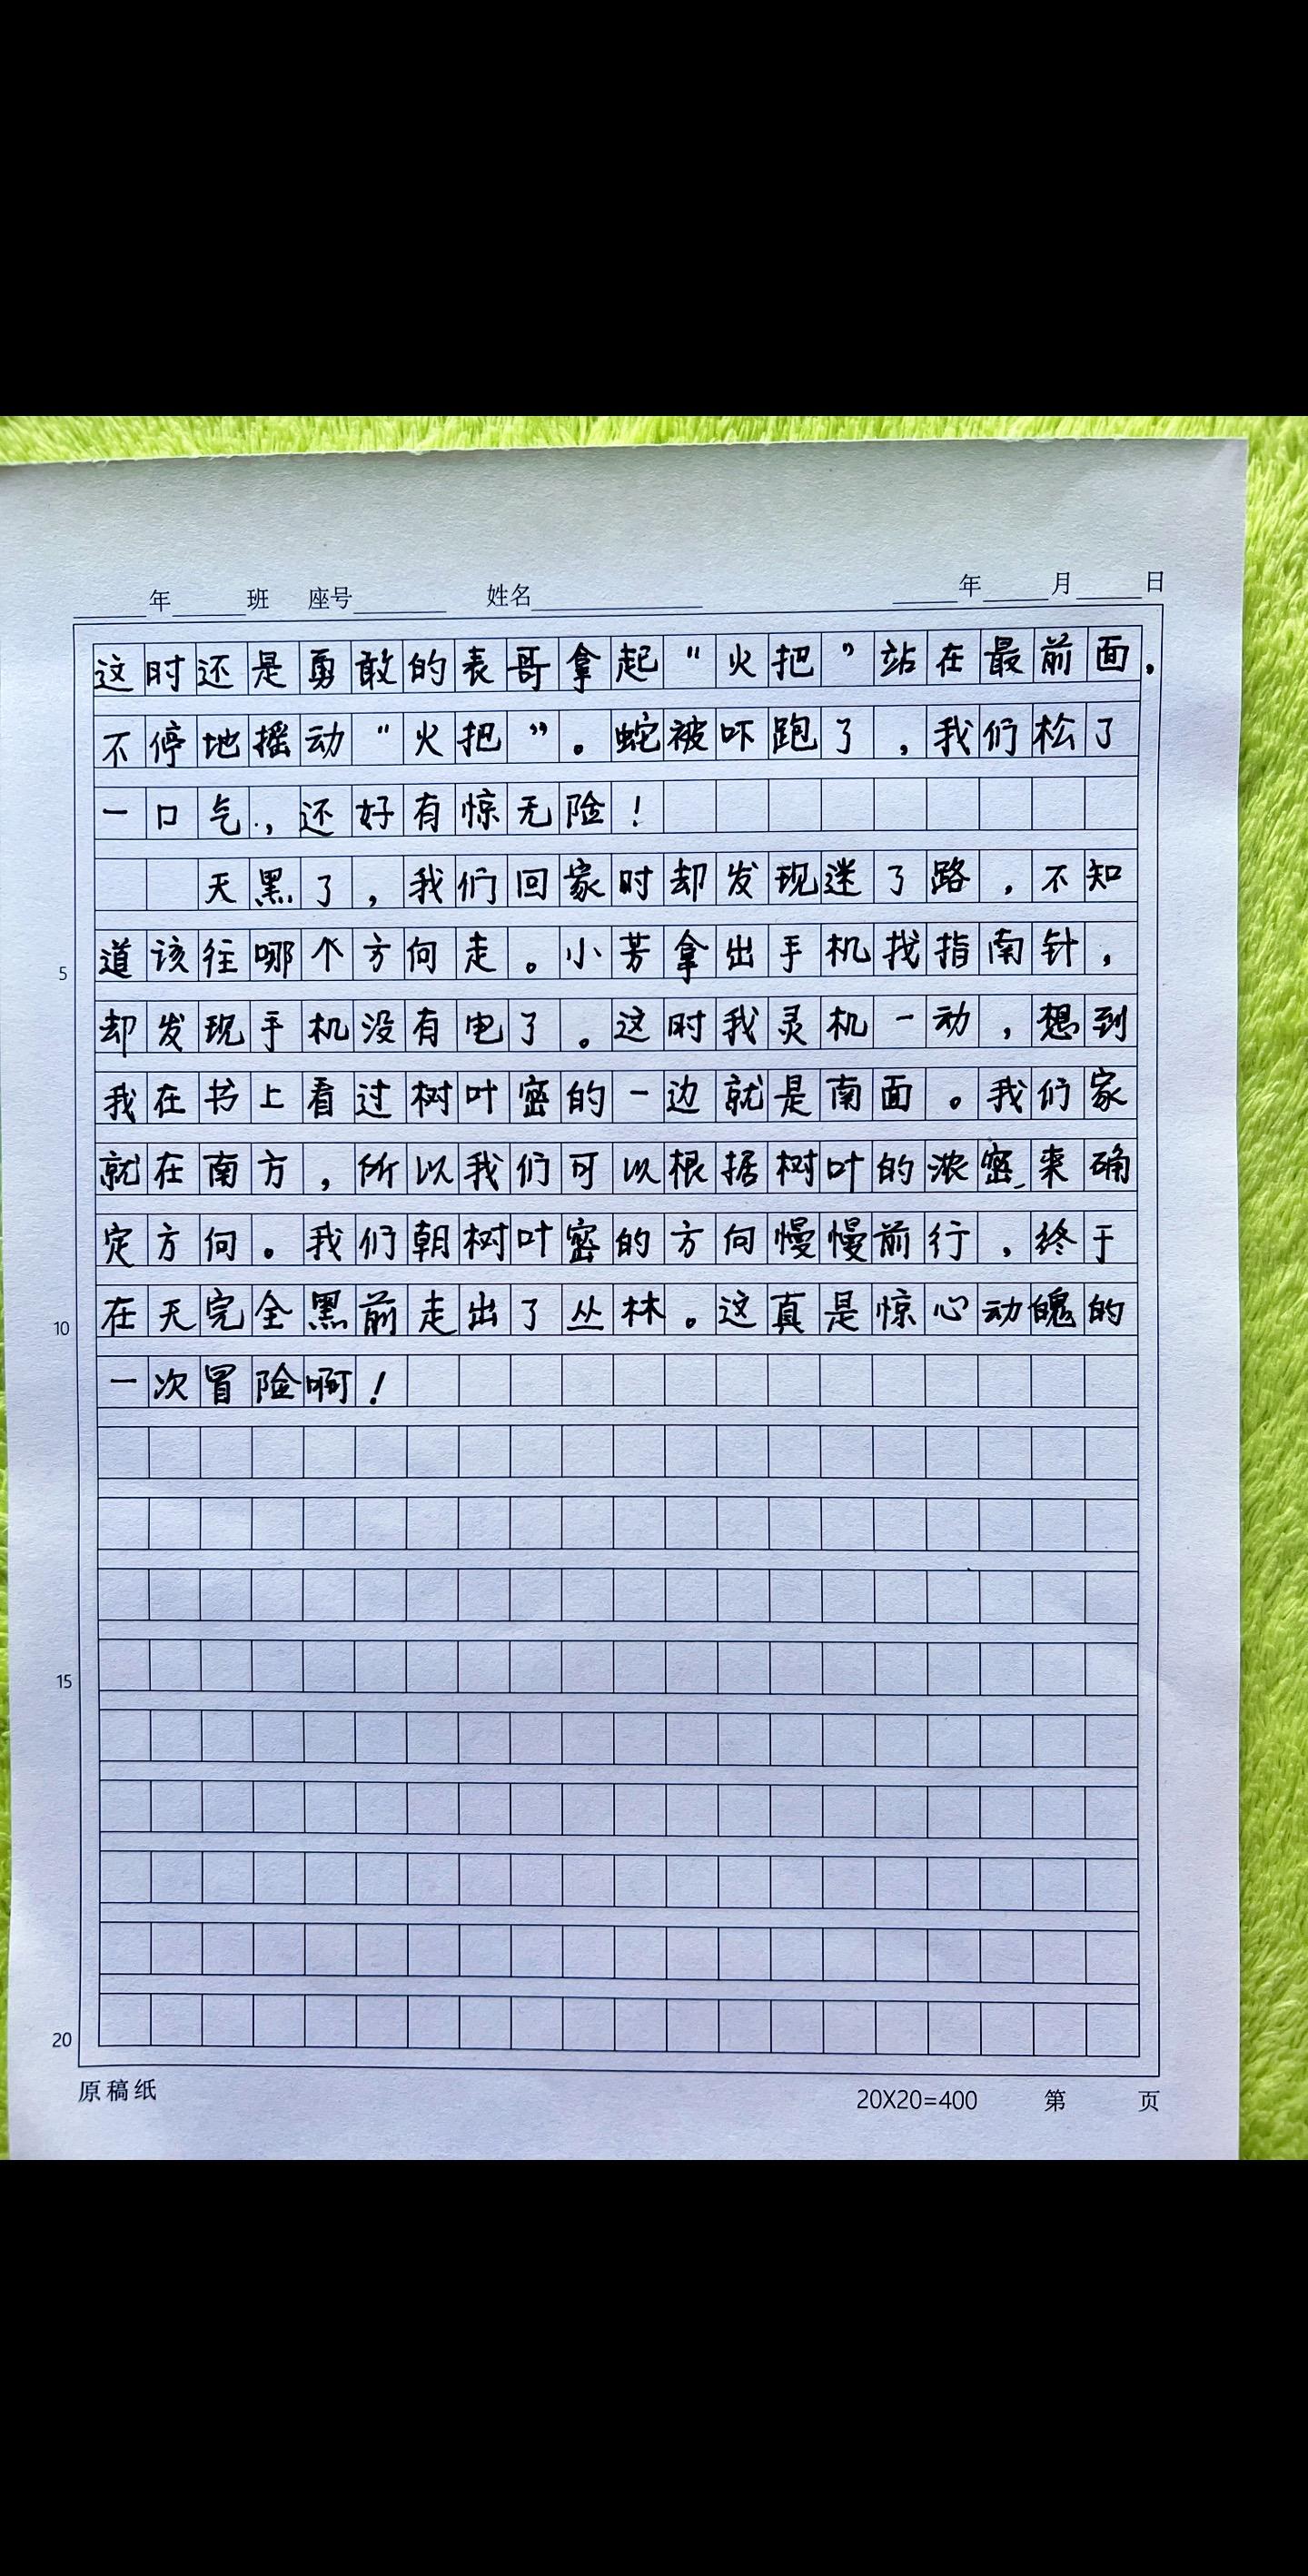 年 班 座号 姓名 年 月 日
这时还是勇敢的表哥拿起“火把”站在最前面，
不停地摇动“火把”。蛇被吓跑了，我们松了
一口气，还好有惊无险！
天黑了，我们回家时却发现迷了路，不知
道该往哪个方向走。小芳拿出手机找指南针，
却发现手机没有电了。这时我灵机一动，想到
我在书上看过树叶密的一边就是南面。我们家
就在南方，所以我们可以根据树叶的浓密来确
定方向。我们朝树叶密的方向慢慢前行，终于
在天完全黑前走出了丛林。这真是惊心动魄的
一次冒险啊！
5
10
15
20
原稿纸 20X20=400 第 页